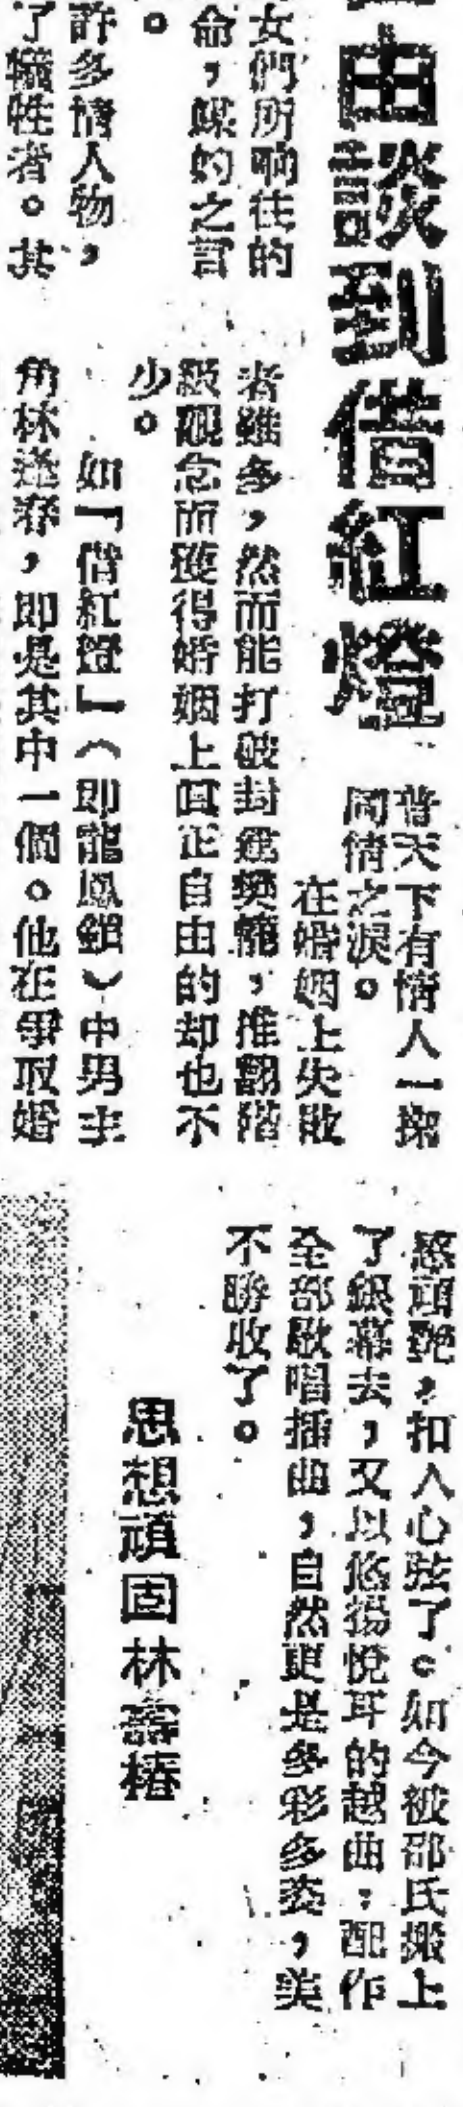 由談到借紅燈
女們所响往的
命，媒妁之言
。
許多情人物，
了犧牲者。其
普天下有情人一掬
同情之淚。
在婚姻上失敗
者雖多，然而能打破封建樊籠，推翻階
級觀念而獲得婚姻上真正自由的却也不
少。
如「借紅燈」（即龍鳳鎖）中男主
角林逢春，即是其中一個。他在爭取婚
感頑艷，扣人心弦了。如今被邵氏搬上
了銀幕去，又以悠揚悅耳的越曲，配作
全部歌唱插曲，自然更是多彩多姿，美
不勝收了。
思想頑固林壽椿